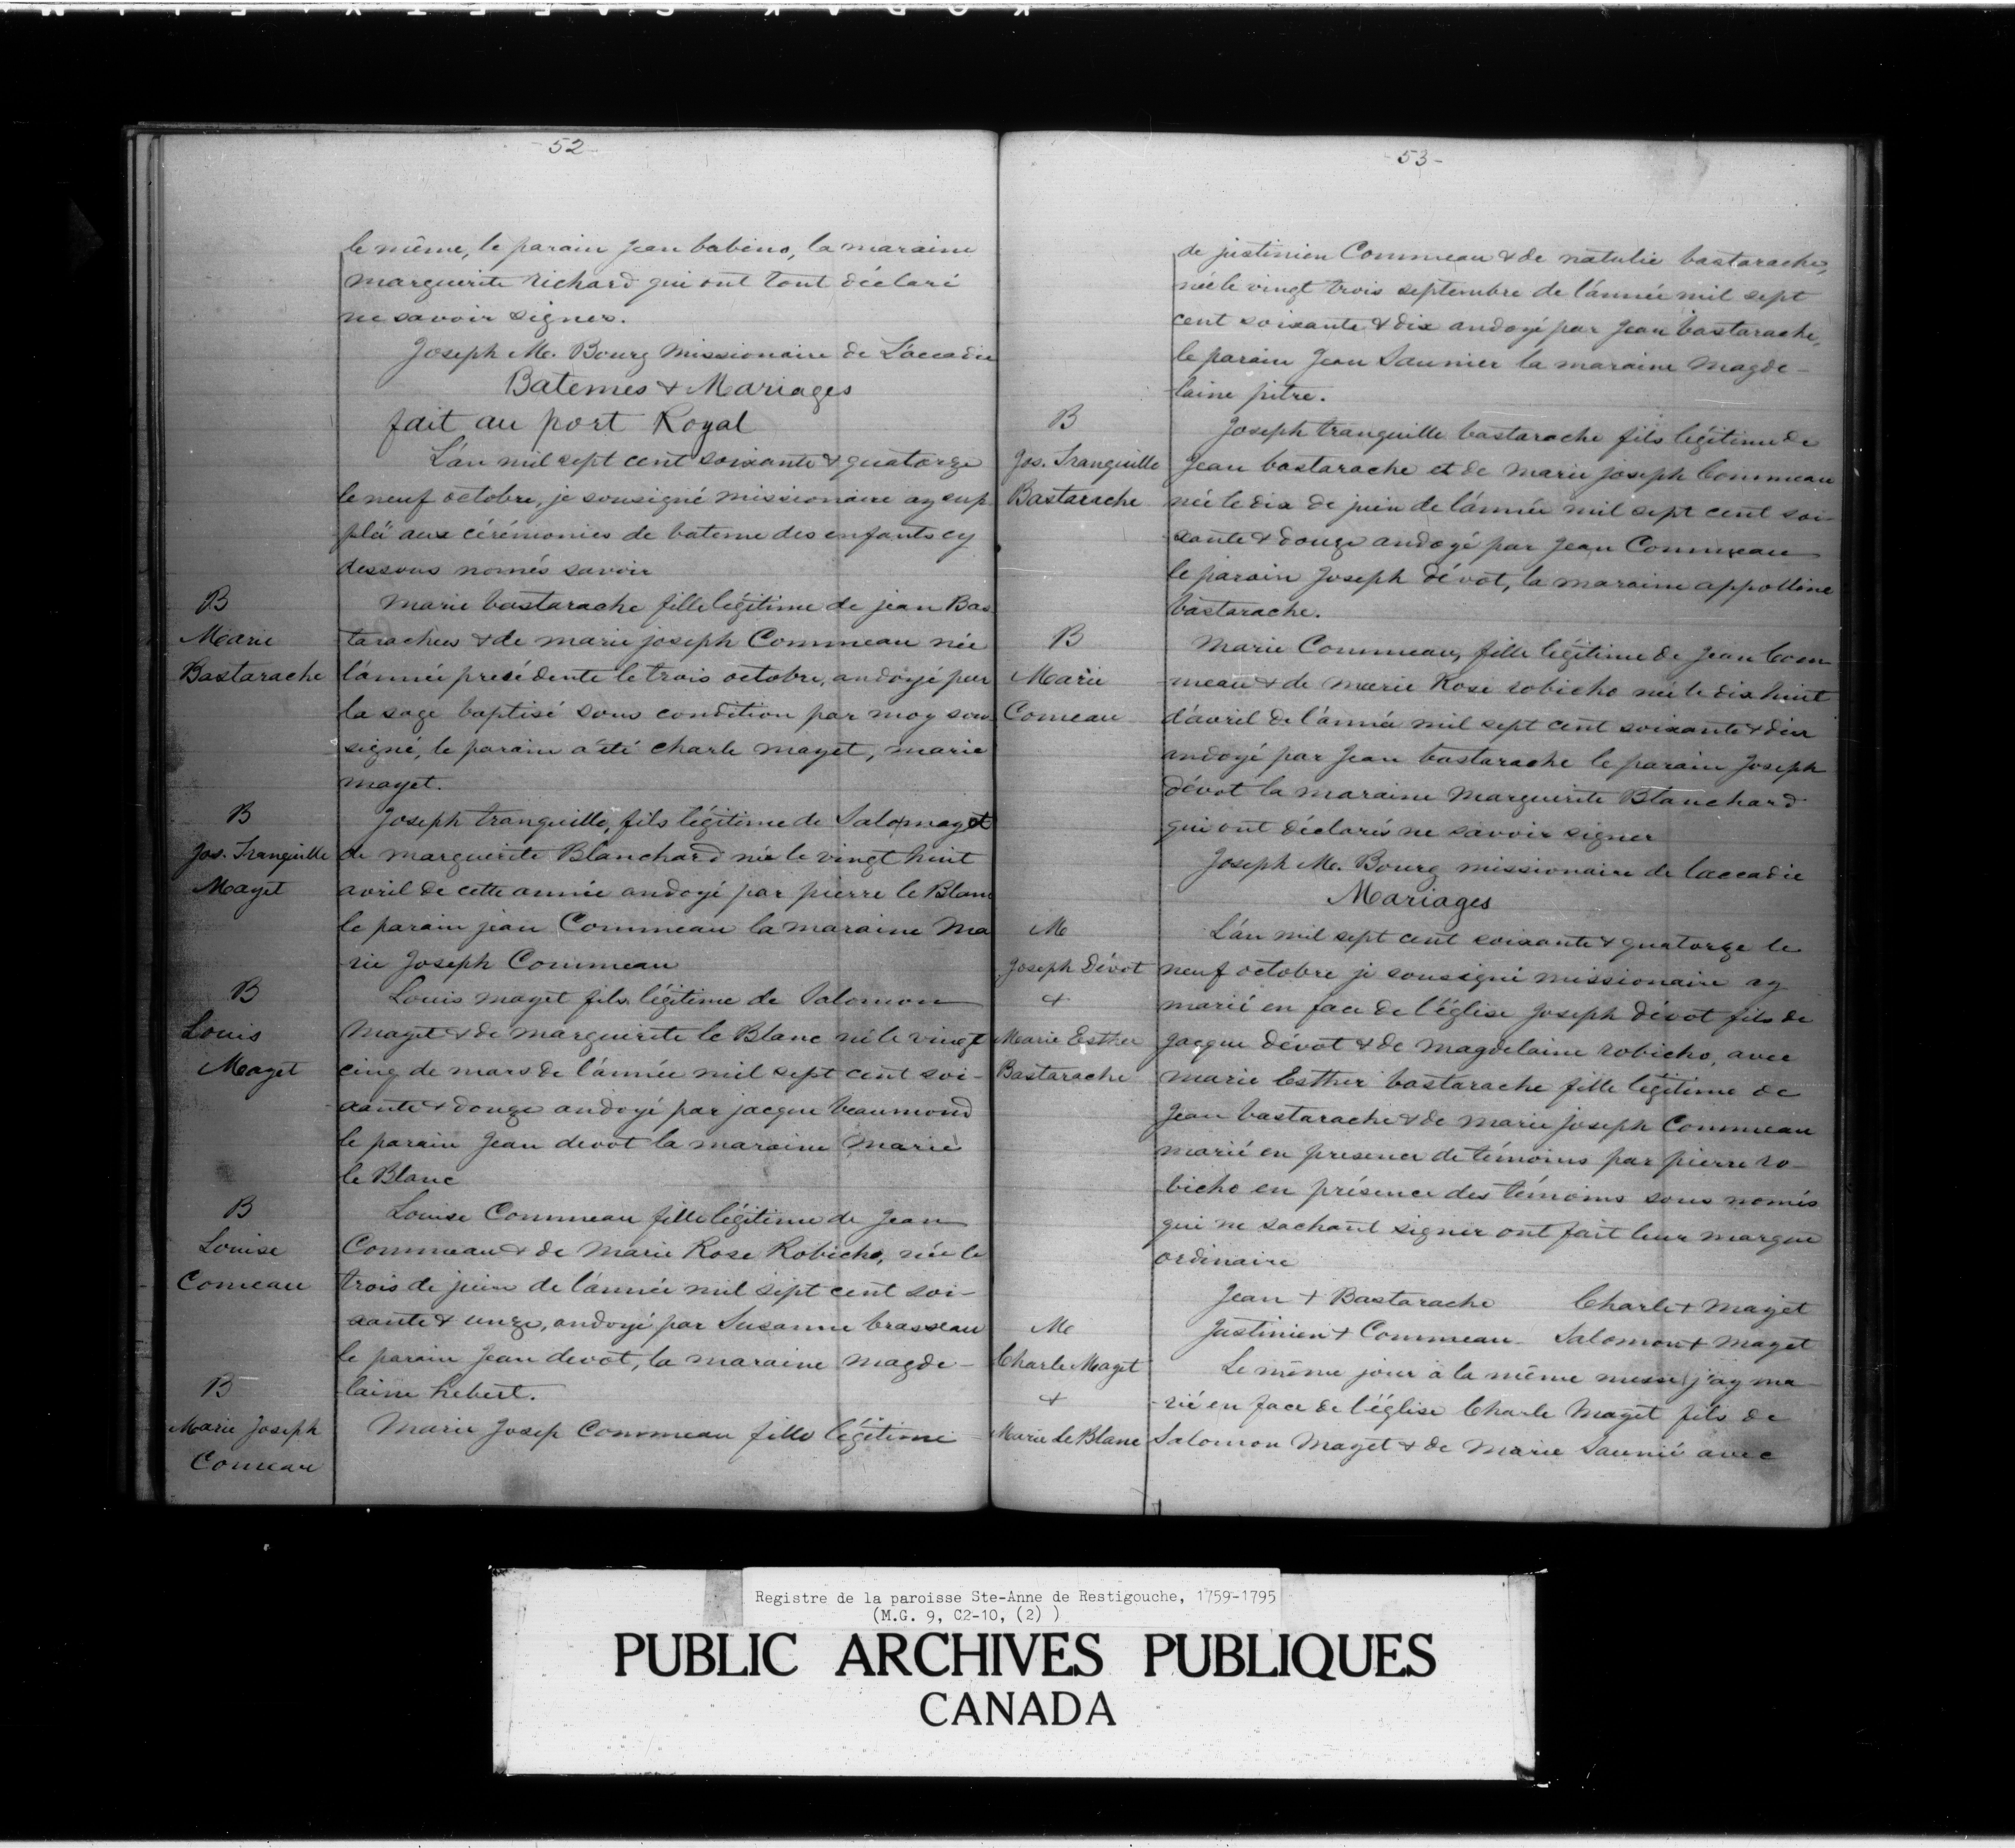 - 52 -
le même, le parain Jean babino, la maraine
marguerite richard qui ont tout déclaré
ne savoir signer.
Joseph M. Bourg Missionaire de L'accadie
Batemes & Mariages
fait au port Royal
L'an mil sept cent soixante & quatorze
le neuf octobre, je sousigné missionaire ay sup
pléï aux cérémonies de bateme des enfants cy
dessous només savoir
B
Marie
Bastarache
Marie bastarache fille légitime de jean Bas
taraches & de marie joseph Commeau née
l'année presédente le trois octobre, andoyé par
la sage baptisé sous condition par moy sou
signé, le parain a été Charle mayet, marie
mayet.
B
Jos. Tranquille
Mayet
Joseph tranquille, fils légitime de Salo mayet
de marguerite Blanchard née le vingt huit
avril de cette année andoyé par pierre le Blanc
le parain jean Commeau la maraine Ma
rie Joseph Commeau
B
Louis
Mayet
Louis mayet fils légitime de Salomon
Mayet & de marguerite le Blanc né le vingt
cinq de mars de l'année mil sept cent soi-
xante & douze andoyé par jacque beaumond
le parain Jean devot la maraine Marie
le Blanc
B
Louise
Comeau
Louise Commeau fille légitime de Jean
Commeau & de Marie Rose Robicho, née le
trois de juin de l'année mil sept cent soi-
xante & unze, andoyé par Susanne brasseau
le parain Jean devot, la maraine magde-
laine hebert.
B
Marie Joseph
Comeau
Marie Josep Commeau fille légitime
53 -
de justinien Commeau & de natalie bastarache,
née le vingt trois septembre de l'année mil sept
cent soixante & dix andoyé par Jean bastarache,
le parain Jean Saunier la maraine Magde-
laine pitre.
B
Jos. Tranquille
Bastarache
Joseph tranquille bastarache fils légitime de
Jean bastarache et de marie joseph Commeau
née le dix de juin de l'année mil sept cent soi-
xante & douze andoyé par Jean Commeau
le parain Joseph dévot, la maraine appolline
bastarache.
B
Marie
Comeau
Marie Commeau, fille légitime de Jean Com
meau & de Marie Rose robicho née le dix huit
d'avril de l'année mil sept cent soixante & dix
andoyé par Jean bastarache le parain Joseph
dévot la maraine Marguerite Blanchard
qui ont déclarés ne savoir signer
Joseph M. Bourg missionaire de laccadie
Mariages
M
Joseph Dévot
&
Marie Esther
Bastarache
L'an mil sept cent soixante & quatorze le
neuf octobre je sousigné missionaire ay
marié en face de l'église Joseph dévot fils de
Jacque dévot & de Magdelaine robicho, avec
Marie Esther bastarache fille légitime de
Jean bastarache & de Marie Joseph Commeau
marié en presence de témoins par pierre ro-
bicho en présence des témoins sous només
qui ne sachant signer ont fait leur marque
ordinaire
Jean + Bastarache Charle + Mayet
Justinien + Commeau Salomon + Mayet
M
Charle Mayet
&
Marie le Blanc
Le même jour à la même messe j'ay ma-
rié en face de l'église Charle Mayet fils de
Salomon Mayet & de Marie Saunié avec
Registre de la paroisse Ste-Anne de Restigouche, 1759-1795
(M.G. 9, C2-10, (2) )
PUBLIC ARCHIVES PUBLIQUES
CANADA